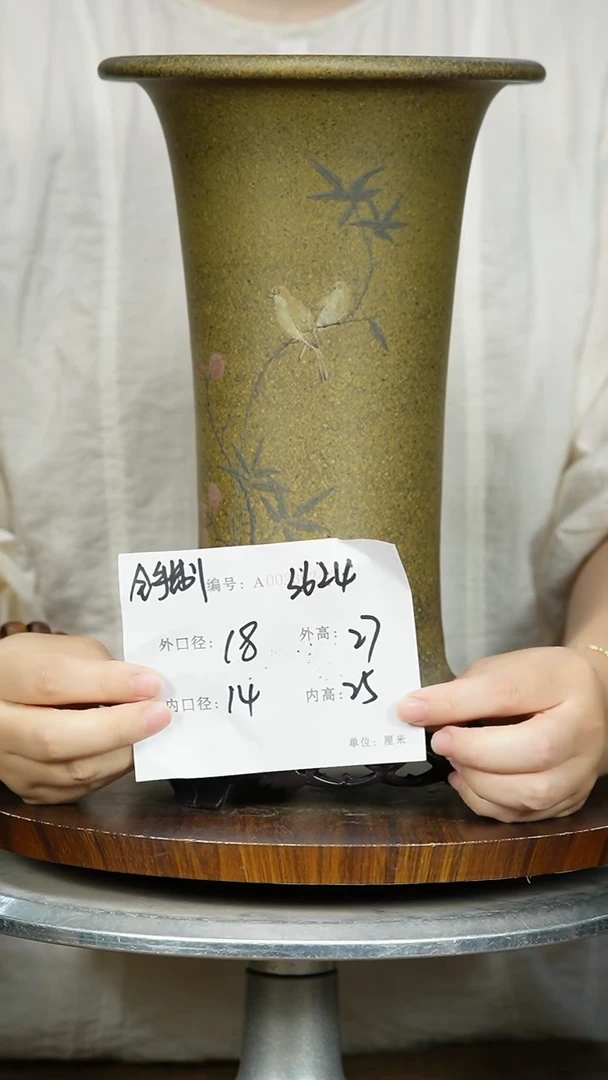 全手制 编号: A00 3624
外口径: 18 外高: 27
内口径: 14 内高: 25
单位: 厘米